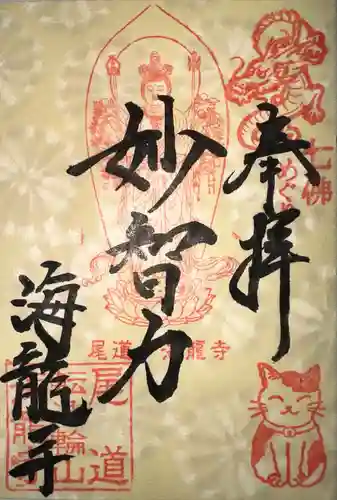 奉拝
七佛めぐり
妙智力
尾道 海龍寺
海龍寺
尾道
転輪山
海龍寺